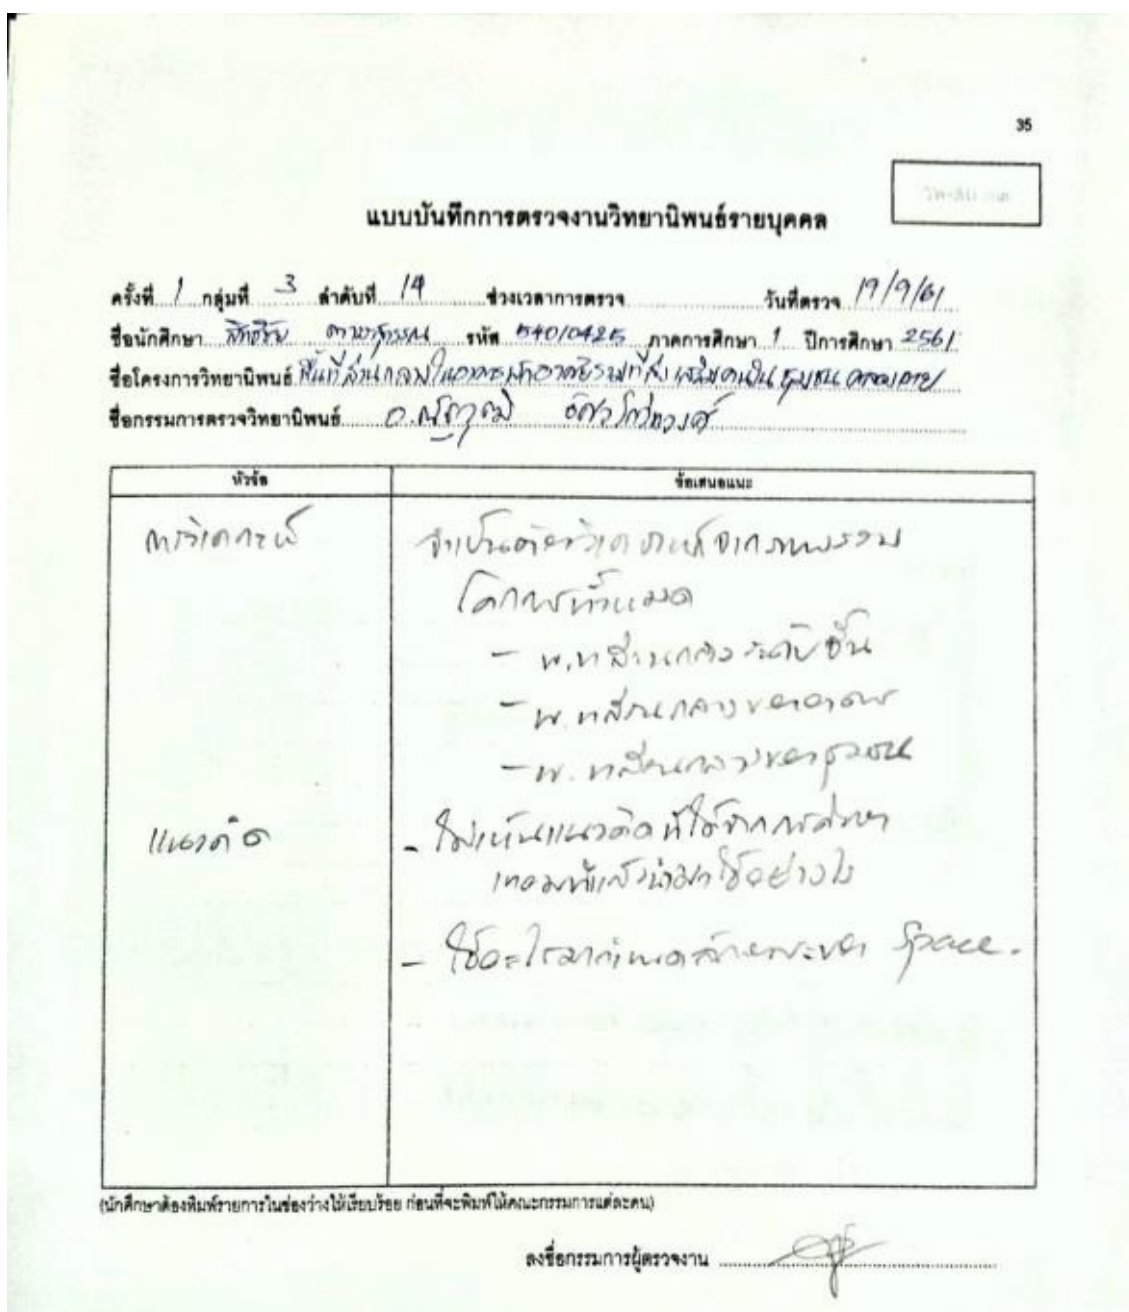 35
แบบบันทึกการตรวจงานวิทยานิพนธ์รายบุคคล
ครั้งที่ 1 กลุ่มที่ 3 ลำดับที่ 14 ช่วงเวลาการตรวจ วันที่ตรวจ 19/9/61
ชื่อนักศึกษา สิทธิชัย รหัส 54010425 ภาคการศึกษา 1 ปีการศึกษา 2561
ชื่อโครงการวิทยานิพนธ์ พื้นที่ส่วนกลางในอาคารพักอาศัยรวมที่ส่งเสริมความเป็นชุมชน
ชื่อกรรมการตรวจวิทยานิพนธ์ อ.ณัฐวุฒิ อัศวโกวิทวงศ์
หัวข้อ ข้อเสนอแนะ
การวิเคราะห์ จำเป็นต้องวิเคราะห์จากภาพรวม
โครงการทั้งหมด
- พ.ท ส่วนกลางระดับชั้น
- พ.ท ส่วนกลางของอาคาร
- พ.ท ส่วนกลางของชุมชน
แนวคิด - ไม่เห็นแนวคิดที่ได้จากการศึกษา
เทอมที่แล้วนำมาใช้อย่างไร
- ใช้อะไรมากำหนดลักษณะของ Space.
(นักศึกษาต้องพิมพ์รายการในช่องว่างให้เรียบร้อย ก่อนที่จะพิมพ์ให้คณะกรรมการแต่ละคน)
ลงชื่อกรรมการผู้ตรวจงาน